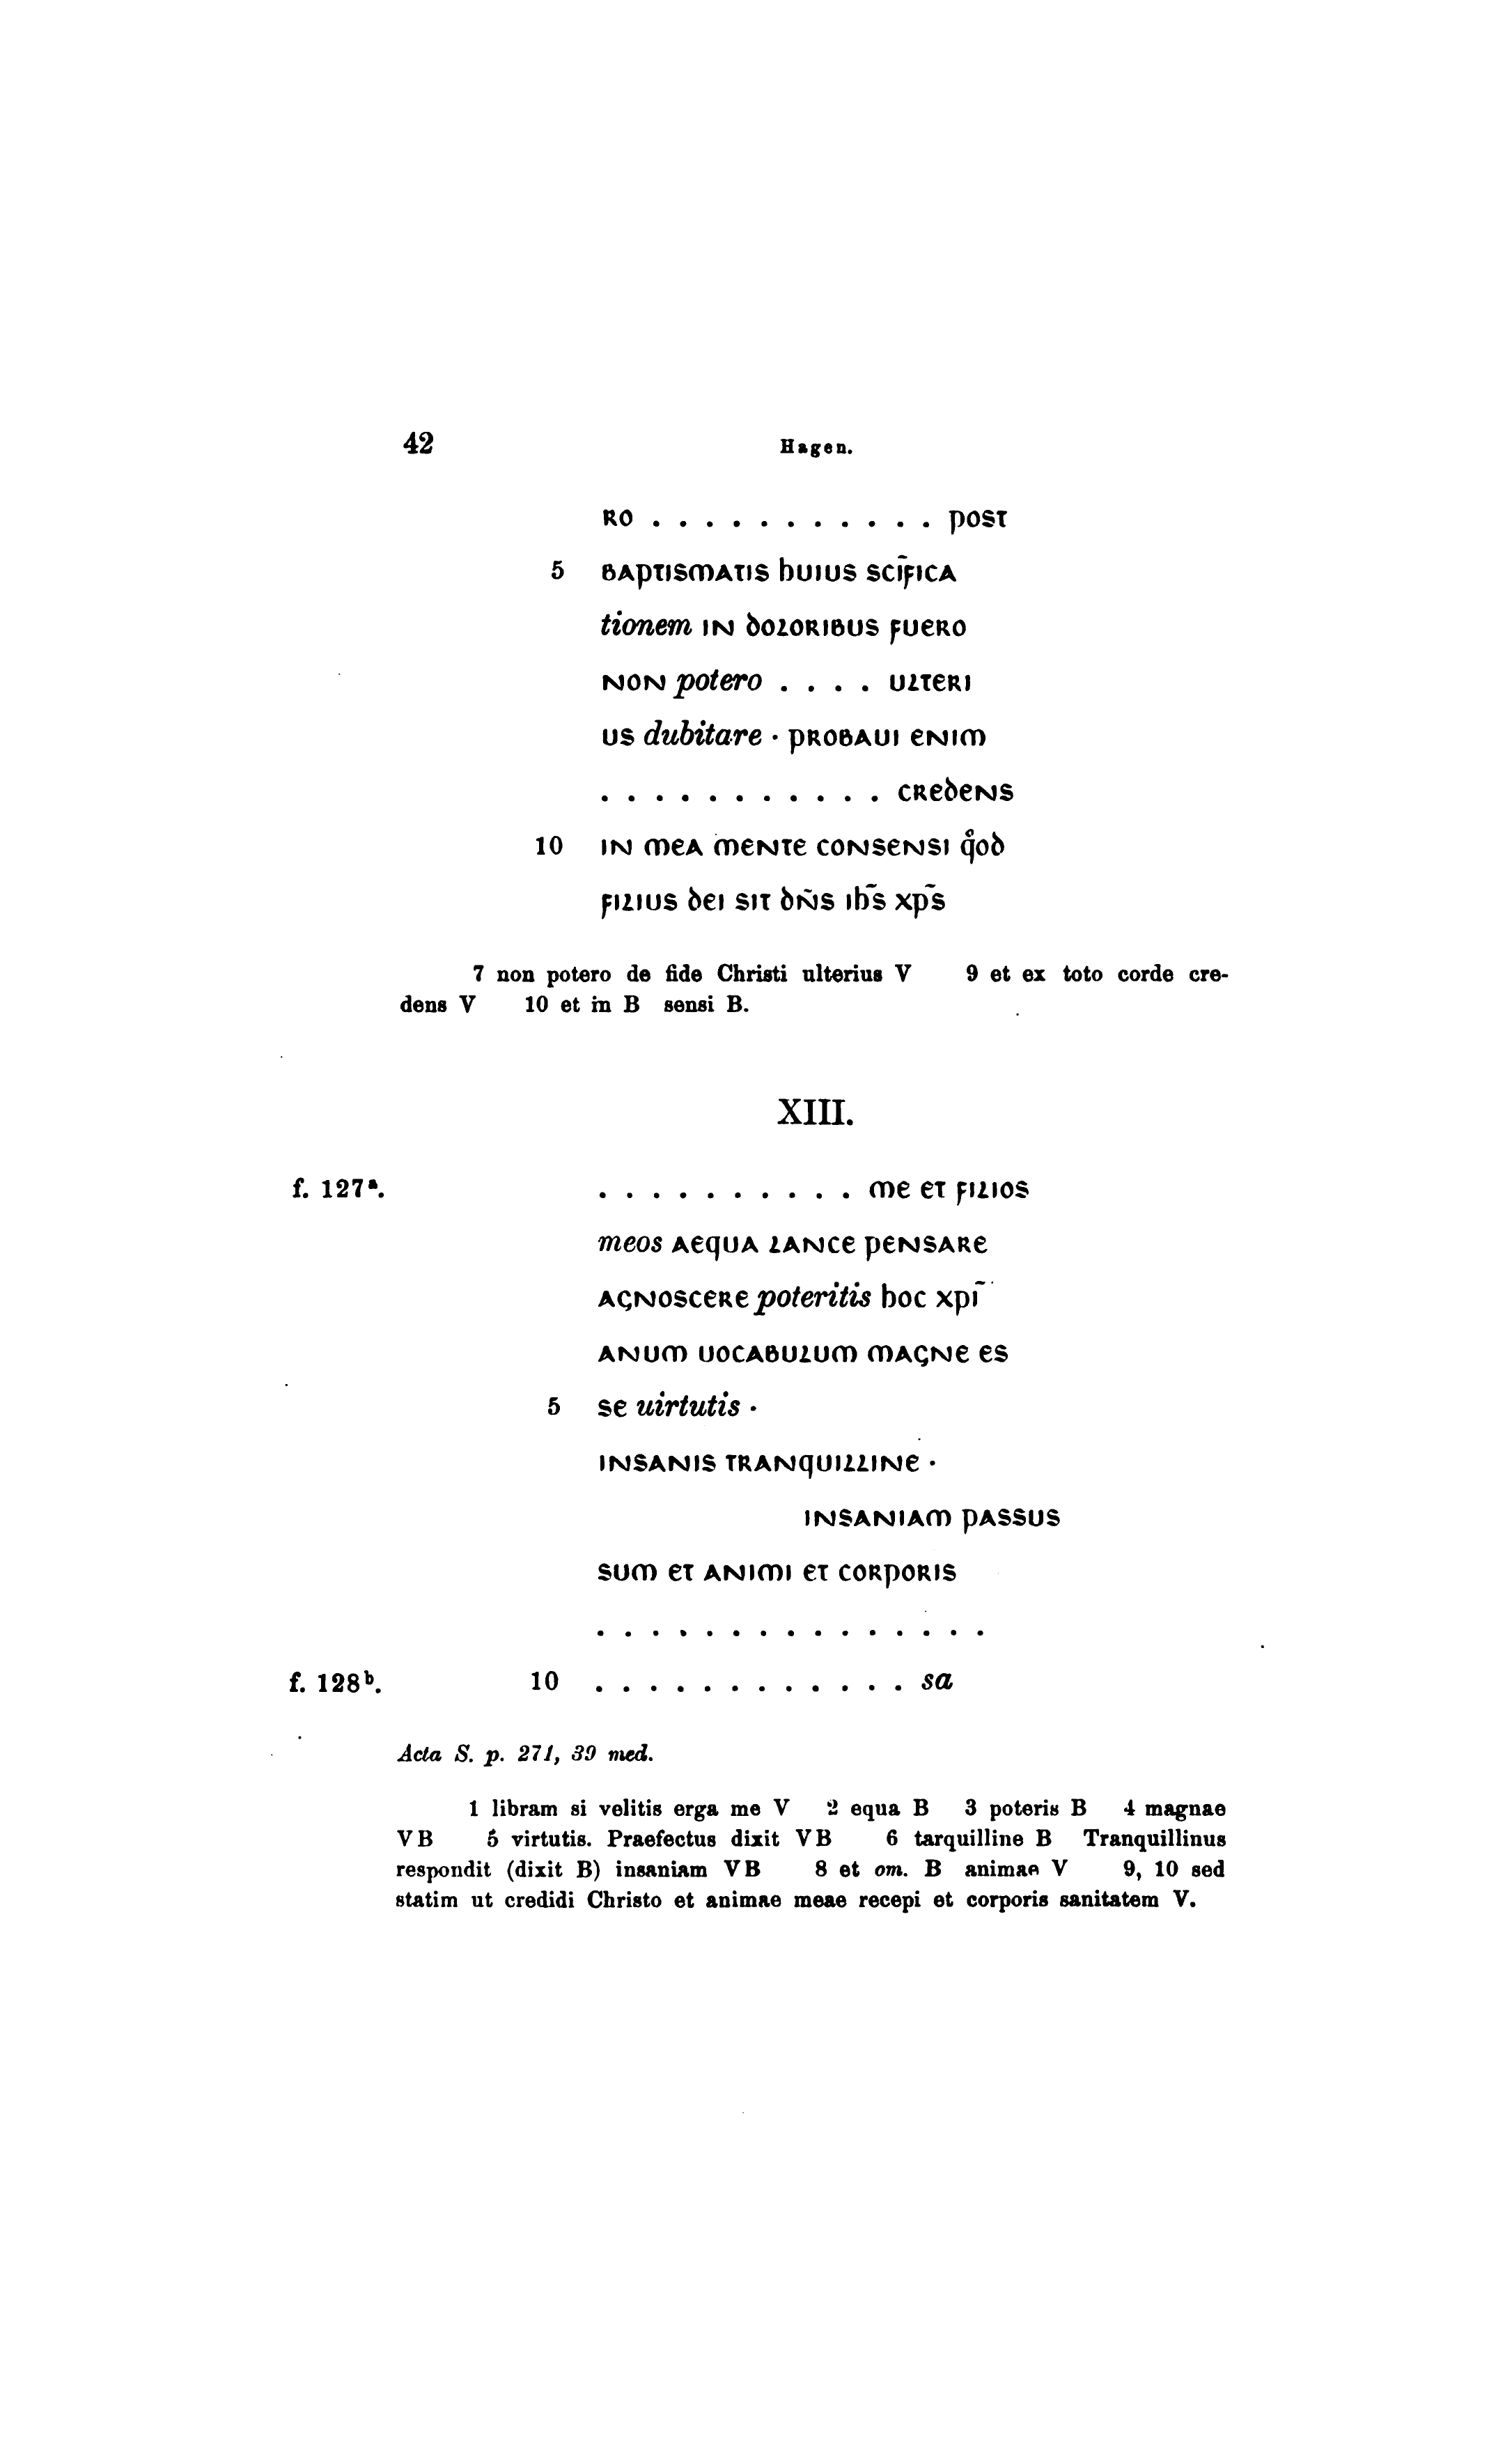 42 Hagen.
RO . . . . . . . . . . . POST
5 BAPTISMATIS HUIUS SCĪFICA
tionem IN DOLORIBUS FUERO
NON potero . . . . ULTERI
US dubitare · PROBAUI ENIM
. . . . . . . . . . . CREDENS
10 IN MEA MENTE CONSENSI q̊OD
FILIUS DEI SIT DN̄S IHS̄ XPS̄
7 non potero de fide Christi ulterius V 9 et ex toto corde cre-
dens V 10 et in B sensi B.
XIII.
f. 127ᵃ. . . . . . . . . . . ME ET FILIOS
meos AEQUA LANCE PENSARE
AGNOSCERE poteritis HOC XPĪ
ANUM UOCABULUM MAGNE ES
5 SE uirtutis ·
INSANIS TRANQUILLINE ·
INSANIAM PASSUS
SUM ET ANIMI ET CORPORIS
. . . . . . . . . . . . . . .
f. 128ᵇ. 10 . . . . . . . . . . . . sa
Acta S. p. 271, 39 med.
1 libram si velitis erga me V 2 equa B 3 poteris B 4 magnae
VB 5 virtutis. Praefectus dixit VB 6 tarquilline B Tranquillinus
respondit (dixit B) insaniam VB 8 et om. B animae V 9, 10 sed
statim ut credidi Christo et animae meae recepi et corporis sanitatem V.